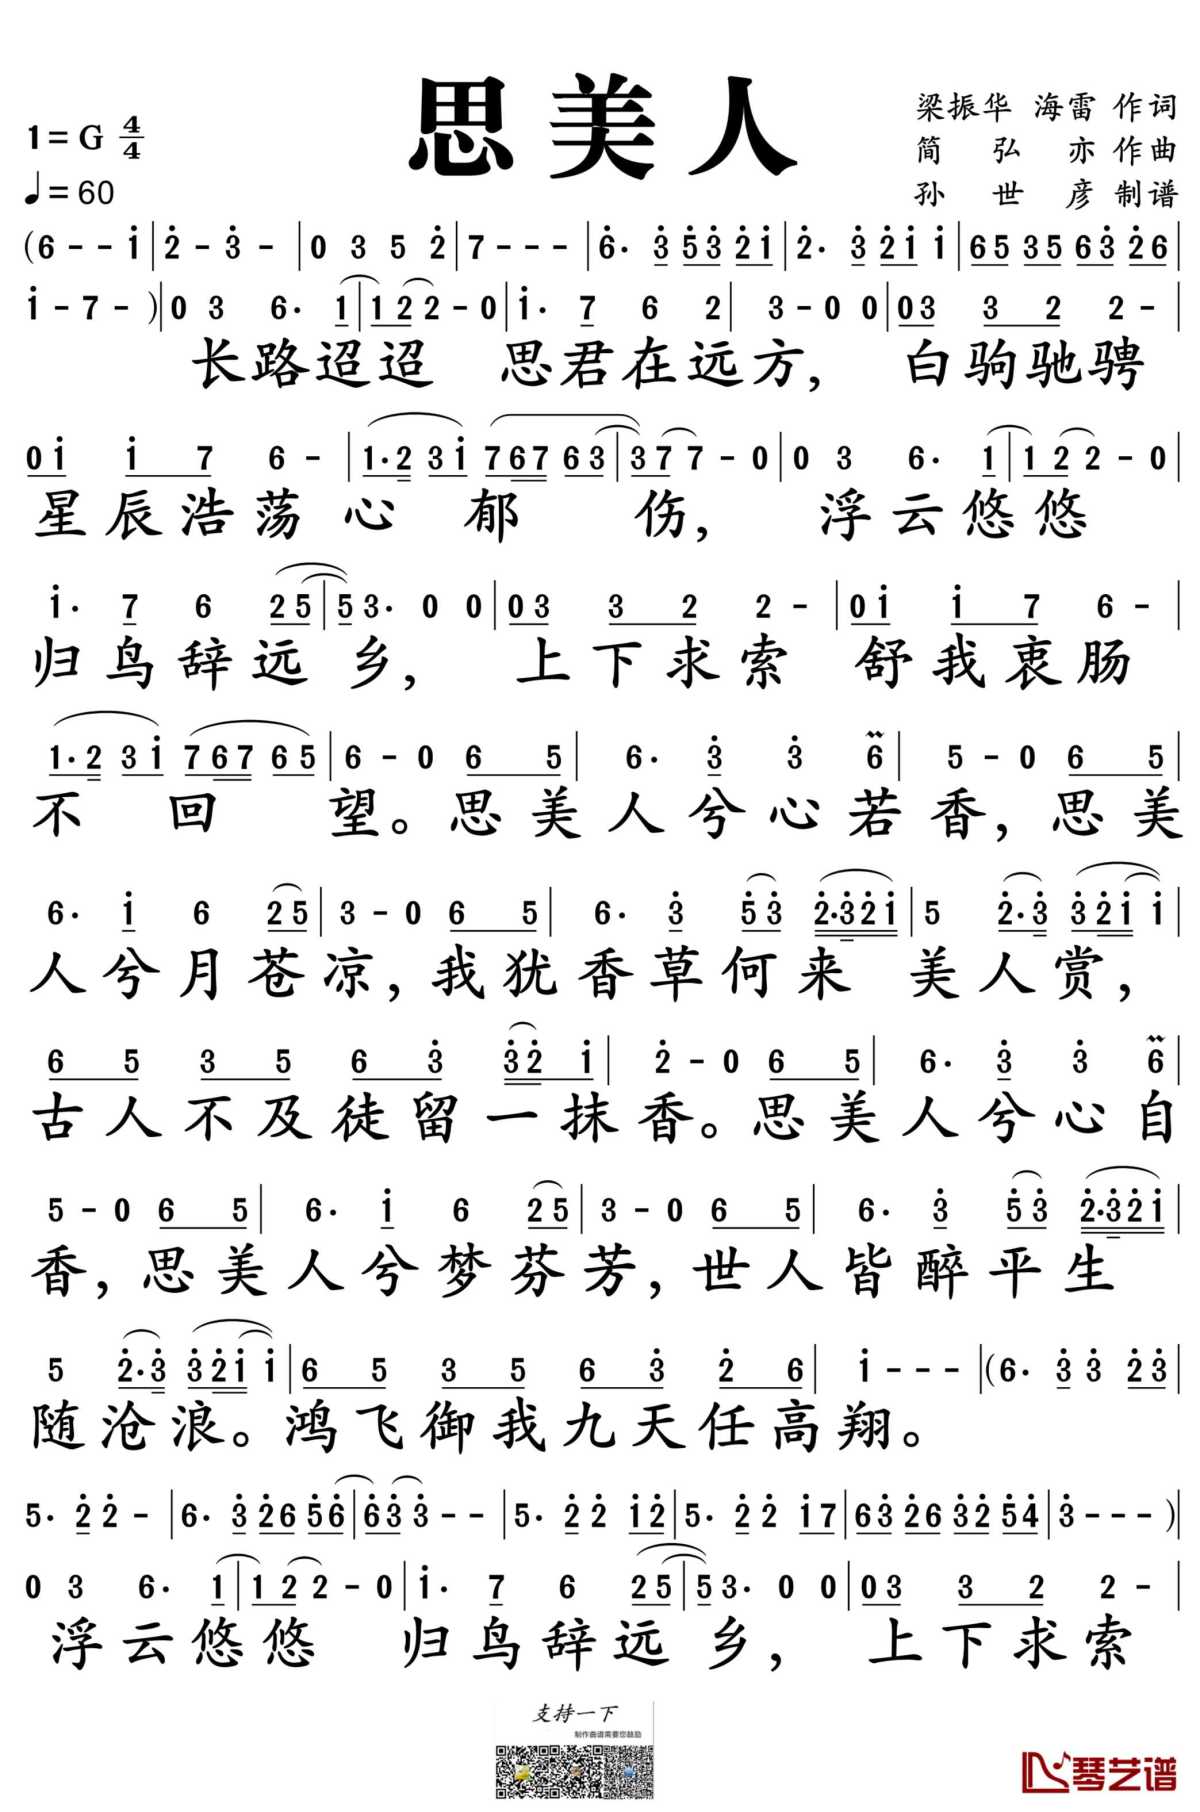 思美人
1=G 4/4
♩=60
梁振华 海雷 作词
简弘亦作曲
孙世彦 制谱
(6 - - i | 2̇ - 3̇ - | 0 3 5 2̇ | 7 - - - | 6· 3̇ 5̇3̇ 2̇i | 2̇· 3̇ 2̇i i | 65 35 63̇ 2̇6 |
i - 7 - ) | 0 3 6· 1 | 1 2 2 - 0 | i· 7 6 2 | 3 - 0 0 | 03 3 2 2 - |
长路迢迢 思君在远方, 白驹驰骋
0i i 7 6 - | 1·2 3i 767 63 | 37 7 - 0 | 0 3 6· 1 | 1 2 2 - 0 |
星辰浩荡心郁伤, 浮云悠悠
i· 7 6 25 | 53· 0 0 | 03 3 2 2 - | 0i i 7 6 - |
归鸟辞远乡, 上下求索 舒我衷肠
1·2 3i 767 65 | 6 - 0 6 5 | 6· 3̇ 3̇ 6 | 5 - 0 6 5 |
不回望。思美人兮心若香, 思美
6· i 6 25 | 3 - 0 6 5 | 6· 3̇ 5̇3̇ 2̇·3̇2̇i | 5 2̇·3̇ 3̇2̇i i |
人兮月苍凉, 我犹香草何来 美人赏,
6 5 3 5 6 3̇ 3̇2̇ i | 2̇ - 0 6 5 | 6· 3̇ 3̇ 6 |
古人不及徒留一抹香。思美人兮心自
5 - 0 6 5 | 6· i 6 25 | 3 - 0 6 5 | 6· 3̇ 5̇3̇ 2̇·3̇2̇i |
香, 思美人兮梦芬芳, 世人皆醉平生
5 2̇·3̇ 3̇2̇i i | 6 5 3 5 6 3̇ 2̇ 6 | i - - - | (6· 3̇ 3̇ 2̇3̇ |
随沧浪。鸿飞御我九天任高翔。
5· 2̇ 2̇ - | 6· 3̇ 2̇6 5̇6 | 63̇ 3̇ - - | 5· 2̇ 2̇ i2̇ | 5· 2̇ 2̇ i7 | 63̇ 2̇6 3̇2̇ 5̇4̇ | 3̇ - - - )|
0 3 6· 1 | 1 2 2 - 0 | i· 7 6 25 | 53· 0 0 | 03 3 2 2 - |
浮云悠悠 归鸟辞远乡, 上下求索
支持一下
制作曲谱需要您鼓励
琴艺谱